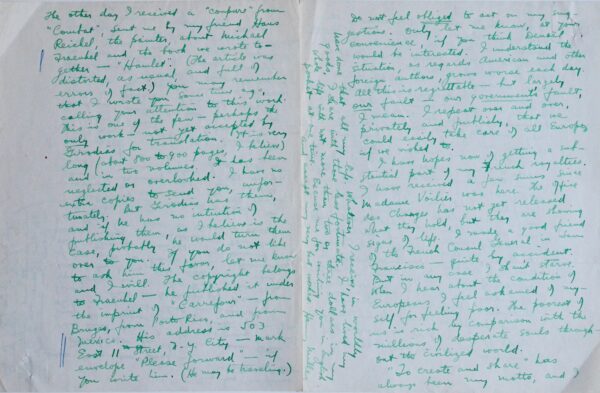 The other day I received a "coupure" from
"Combat", sent me by my friend Hans
Reichel, the painter, about Michael
Fraenkel and the book we wrote to-
gether — "Hamlet". (The article was
distorted, as usual, and full of
errors of fact.) You may remember
that I wrote you some time ago,
calling your attention to this work.
This is one of the few — perhaps the
only work — not yet accepted by
Girodias for translation. It is very
long (about 800 to 900 pages, I believe)
and in two volumes. It has been
neglected or overlooked. I have no
extra copies to send you, unfor-
tunately. But Girodias has them,
and if he has no intention of
publishing them, as I believe is the
case, probably he would turn them
over to you. If you do not like
to ask him this favor, let me know
and I will. The copyright belongs
to Fraenkel — he published it under
the imprint of "Carrefour" — from
Bruges, from Porto Rico, and from
Mexico. His address is 503
East 11th Street, N.Y. City — mark
envelope "Please forward" — if
you write him. (He may be traveling.)
Do not feel obliged to act on my sug-
gestions. Only let me know, at your
convenience, if you think Denoël
would be interested. I understand the
situation, as regards American and other
foreign authors, grows worse each day.
All this is regrettable — but largely
our fault — our government's fault,
I mean. I repeat over and over,
privately and publicly, that we
could easily take care of all Europe
if we wished to.
I have hopes now of getting a sub-
stantial part of my French royalties.
I have received a few sums since
Madame Voilier was here. The Office
des Changes has not yet released
what they hold, but they are showing
signs of life. I made a good friend
of the French Consul General in San
Francisco — quite by accident.
But in my case I shant starve.
When I hear about the condition of
Europeans I feel ashamed of my-
self for feeling poor. The poorest of
us is rich by comparison with the
millions of desperate souls through-
out the civilized world.
"To create and share" has
always been my motto, and I
have done that all my life. Whatever I receive in worldly
goods, I share with those less fortunate. I have lived my
whole life with not more than two or three dollars in
my